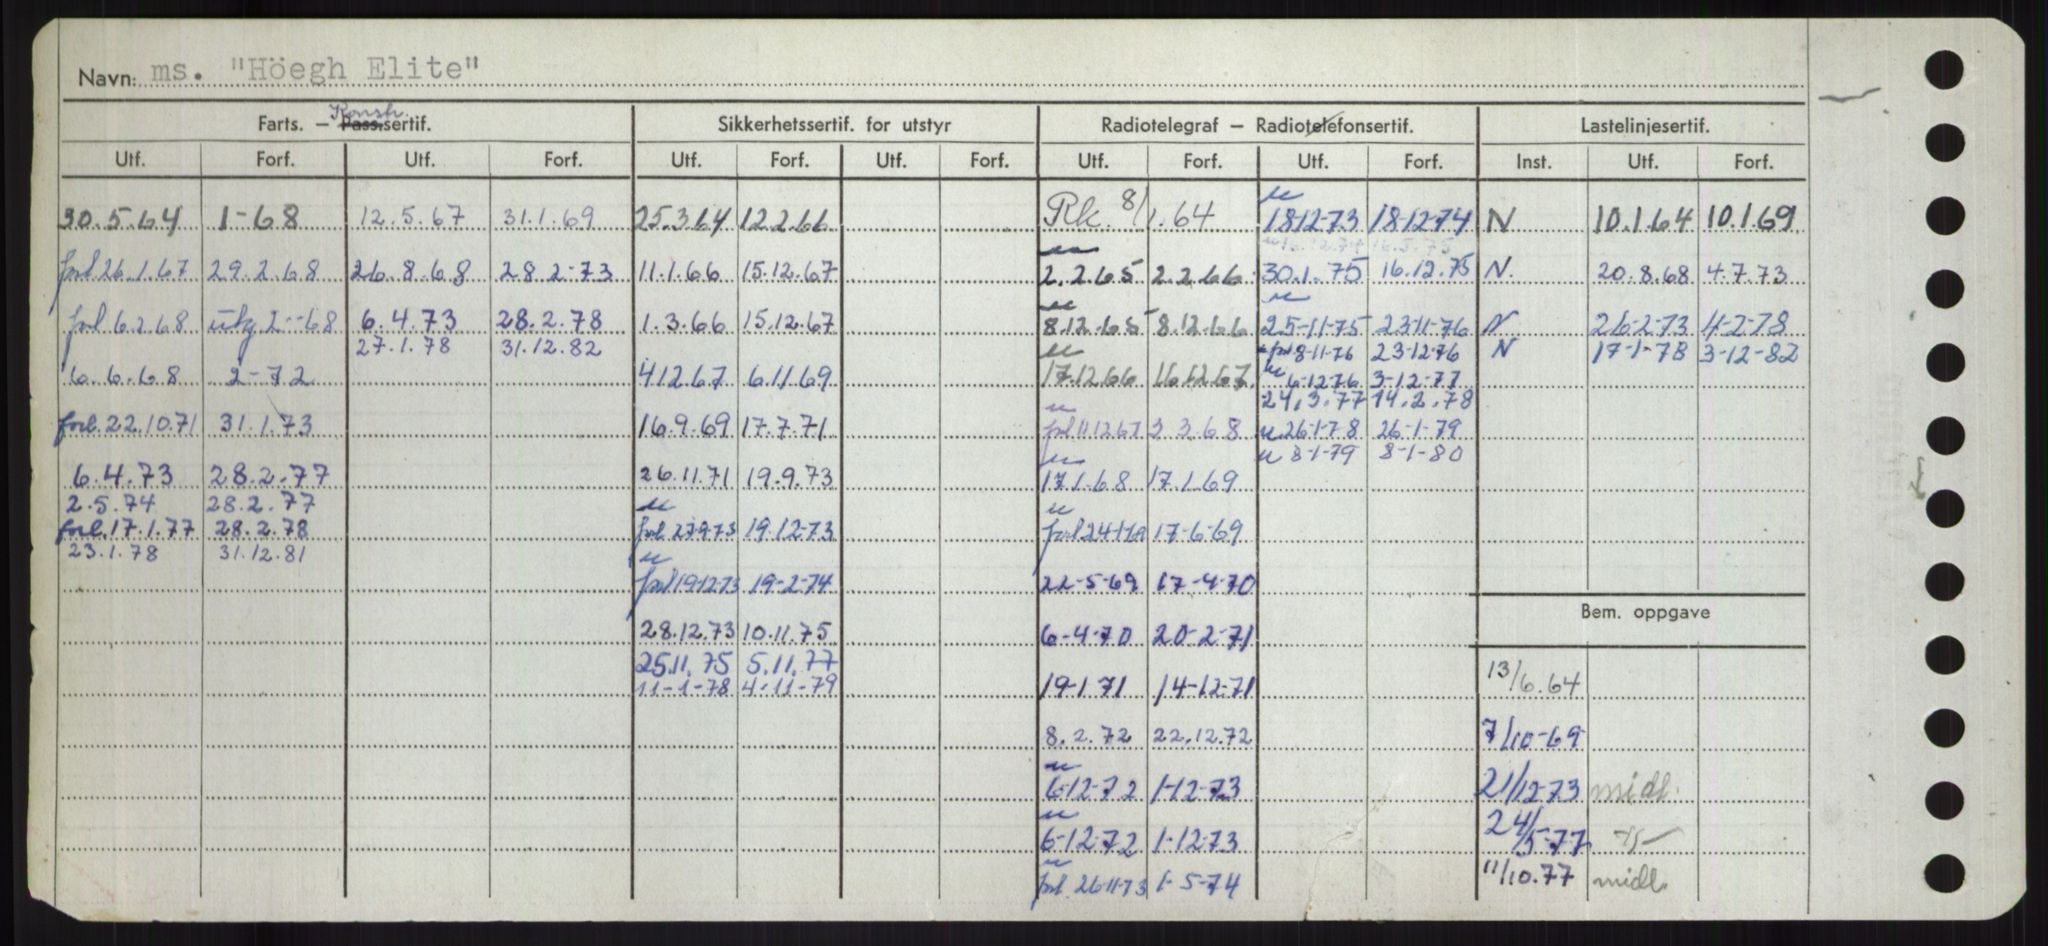 Navn: ms. "Höegh Elite"
Farts. – Konstr. Pass.sertif. Sikkerhetssertif. for utstyr Radiotelegraf – Radiotelefonsertif. Lastelinjesertif.
Utf. Forf. Utf. Forf. Utf. Forf. Utf. Forf. Utf. Forf. Utf. Forf. Inst. Utf. Forf.
30.5.64 1-68 12.5.67 31.1.69 25.3.64 12.2.66 Rk. 8/1.64 18-12-73 18-12-74 N 10.1.64 10.1.69
16.12.74 16.5.75
forl 26.1.67 29.2.68 26.8.68 28.2-73 11.1.66 15.12.67 2.2.65 2.2.66 30.1.75 16.12.75 N. 20.8.68 4.7.73
forl 6.2.68 utg 2-68 6.4.73 28.2.78 1.3.66 15.12.67 8.12.65 8.12.66 25-11-75 23-11-76 N 26-2-73 4-2-78
27.1.78 31.12.82 forl 8-11-76 23-12-76 N 17-1-78 3-12-82
6.6.68 2-72 4.12.67 6.11.69 17.12.66 16.12.67 6-12-76 3-12-77
24.3.77 14.2.78
forl. 22.10.71 31.1.73 16.9.69 17.7.71 forl 11.12.67 3.3.68 26-1-78 26-1-79
8-1-79 8-1-80
6.4.73 28.2.77 26.11.71 19.9.73 17.1.68 17.1.69
2.5.74 28.2.77
forl. 17.1.77 28.2.78 forl. 27.9.73 19.12.73 forl 24-1-69 17-6-69
23.1.78 31.12.81
forl 19-12-73 19-2-74 22-5-69 17-4-70
Bem. oppgave
28.12.73 10.11.75 6-4-70 20-2-71
25.11.75 5.11.77 13/6.64
11-1-78 4-11-79 19-1-71 14-12-71
8.2.72 22.12.72 7/10-69
6-12-72 1-12-73 21/12-73 midl.
6-12-72 1-12-73 24/5-77
forl. 26-11-73 1-5-74 11/10.77 midl.